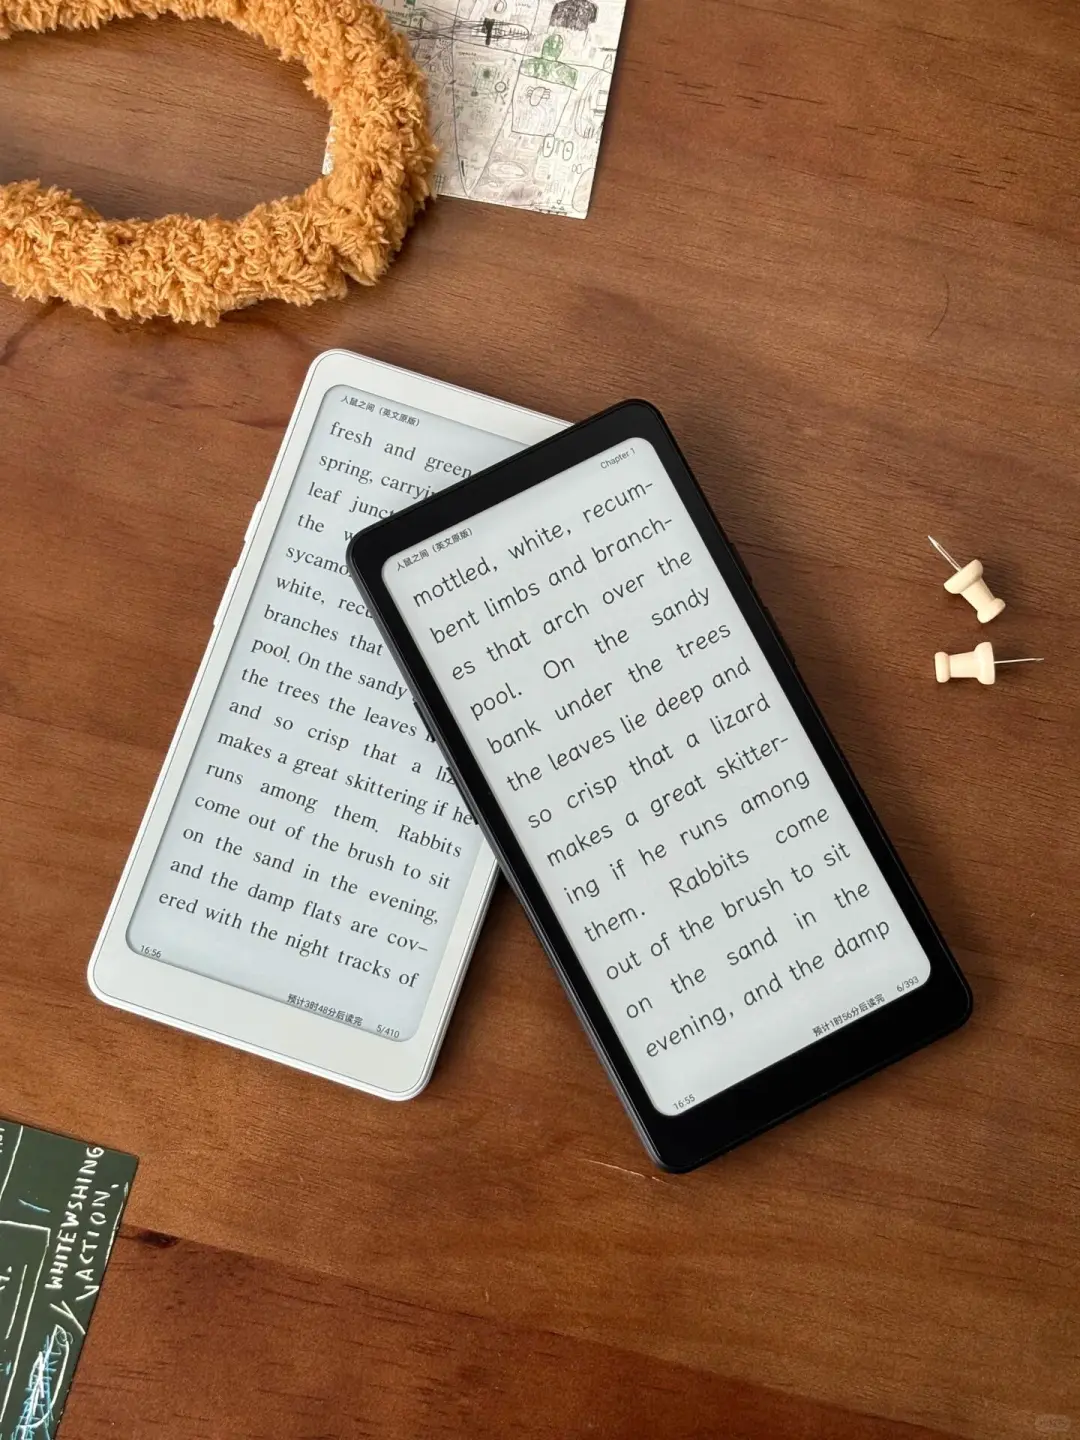 人鼠之间（英文原版）
fresh and green
spring, carryin
leaf junct
the w
sycamo
white, recu
branches that
pool. On the sandy
the trees the leaves li
and so crisp that a liz
makes a great skittering if he
runs among them. Rabbits
come out of the brush to sit
on the sand in the evening,
and the damp flats are cov–
ered with the night tracks of
16:56
预计3时48分后读完
5/410
人鼠之间（英文原版）
Chapter 1
mottled, white, recum-
bent limbs and branch-
es that arch over the
pool. On the sandy
bank under the trees
the leaves lie deep and
so crisp that a lizard
makes a great skitter-
ing if he runs among
them. Rabbits come
out of the brush to sit
on the sand in the
evening, and the damp
16:55
预计1时56分后读完
6/393
WHITEWSHING
VACTION,